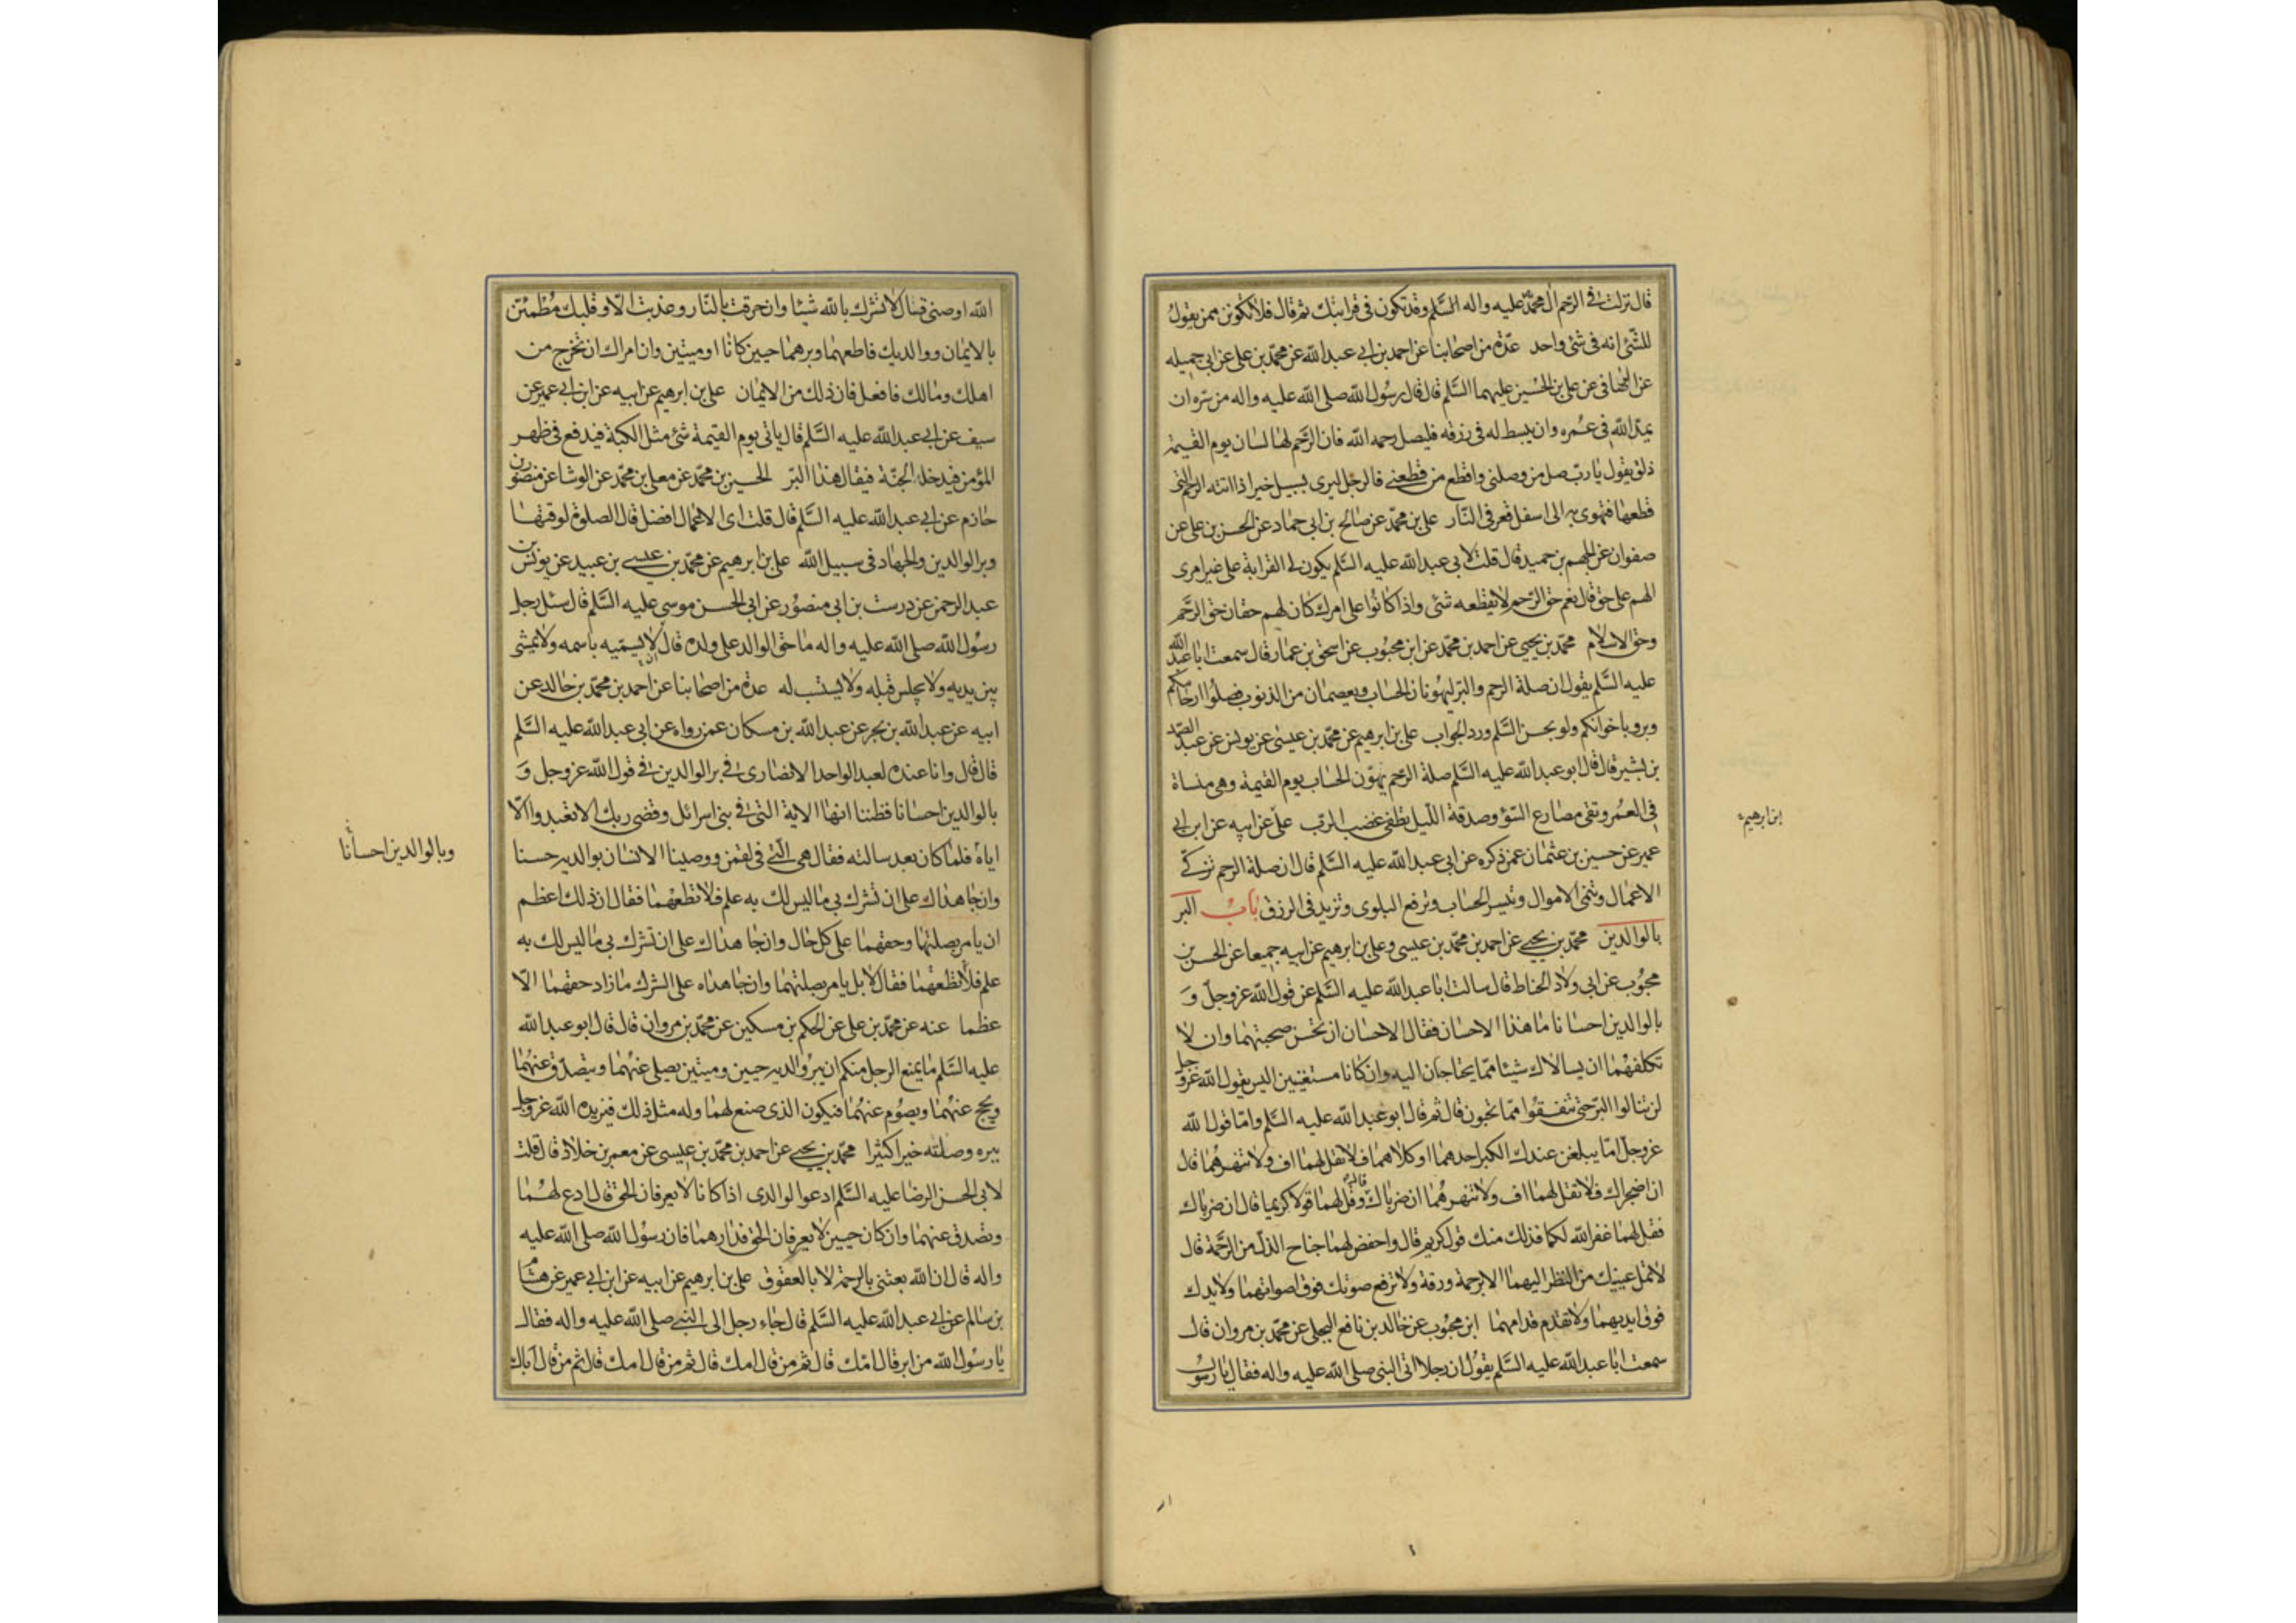 قال نزلت في الرحم آل محمد عليه واله السلم وقد تكون في قرابتك ثم قال فلا تكونن ممن يقول
للشئ انه في شئ واحد عدة من اصحابنا عن احمد بن ابي عبد الله عن محمد بن علي عن ابي جميله
عن الوصافي عن علي بن الحسين عليهما السلم قال قال رسول الله صلى الله عليه واله من سره ان
يمد الله في عمره وان يبسط له في رزقه فليصل رحمه الله فان الرحم لها لسان يوم القيمة
ذلق يقول يا رب صل من وصلني واقطع من قطعني فالرجل ليرى بسبيل خير اذا اتته الرحم التي
قطعها فتهوى به الى اسفل قعر في النار علي بن محمد عن صالح بن ابي حماد عن الحسن بن علي عن
صفوان عن الجهم بن حميد قال قلت لابي عبد الله عليه السلم يكون لي القرابة على غير امرى
الهم علي حق قال نعم حق الرحم لا يقطعه شئ واذا كانوا على امرك كان لهم حقان حق الرحم
وحق الاسلام محمد بن يحيى عن احمد بن محمد عن ابن محبوب عن اسحق بن عمار قال سمعت ابا عبد الله
عليه السلم يقول ان صلة الرحم والبر ليهونان الحساب ويعصمان من الذنوب فصلوا ارحامكم
وبروا باخوانكم ولو بحسن السلم ورد الجواب علي بن ابرهيم عن محمد بن عيسى عن يونس عن عبد الصمد
بن بشير قال قال ابو عبد الله عليه السلم صلة الرحم يهون الحساب يوم القيمة وهي منساة
في العمر وتقى مصارع السوء وصدقة الليل تطفئ غضب الرب علي عن ابيه عن ابن ابي
ابن ابرهيم
عمير عن حسين بن عثمان عمن ذكره عن ابي عبد الله عليه السلم قال ان صلة الرحم تزكي
الاعمال وتنمي الاموال وتيسر الحساب وترفع البلوى وتزيد في الرزق باب البر
بالوالدين محمد بن يحيى عن احمد بن محمد بن عيسى وعلي بن ابرهيم عن ابيه جميعا عن الحسن بن
محبوب عن ابي ولاد الحناط قال سالت ابا عبد الله عليه السلم عن قول الله عز وجل و
بالوالدين احسانا ما هذا الاحسان فقال الاحسان ان تحسن صحبتهما وان لا
تكلفهما ان يسالاك شيئا مما يحتاجان اليه وان كانا مستغنيين اليس يقول الله عز وجل
لن تنالوا البر حتى تنفقوا مما تحبون قال ثم قال ابو عبد الله عليه السلم واما قول الله
عز وجل اما يبلغن عندك الكبر احدهما او كلاهما فلا تقل لهما اف ولا تنهرهما قال
ان اضجراك فلا تقل لهما اف ولا تنهرهما ان ضرباك قال وقل لهما قولا كريما قال ان ضرباك
فقل لهما غفر الله لكما فذلك منك قول كريم قال واخفض لهما جناح الذل من الرحمة قال
لا تمل عينيك من النظر اليهما الا برحمة ورقة ولا ترفع صوتك فوق اصواتهما ولا يدك
فوق ايديهما ولا تقدم قدامهما ابن محبوب عن خالد بن نافع البجلي عن محمد بن مروان قال
سمعت ابا عبد الله عليه السلم يقول ان رجلا اتى النبي صلى الله عليه واله فقال يا رسول
الله اوصني فقال لا تشرك بالله شيئا وان حرقت بالنار وعذبت الا وقلبك مطمئن
بالايمان ووالديك فاطعهما وبرهما حيين كانا او ميتين وان امراك ان تخرج من
اهلك ومالك فافعل فان ذلك من الايمان علي بن ابرهيم عن ابيه عن ابن ابي عمير عن
سيف عن ابي عبد الله عليه السلم قال ياتي يوم القيمة شئ مثل الكبة فيدفع في ظهر
المؤمن فيدخله الجنة فيقال هذا البر الحسين بن محمد عن معلى بن محمد عن الوشا عن منصور بن
حازم عن ابي عبد الله عليه السلم قال قلت اى الاعمال افضل قال الصلوة لوقتها
وبر الوالدين والجهاد في سبيل الله علي بن ابرهيم عن محمد بن عيسى بن عبيد عن يونس بن
عبد الرحمن عن درست بن ابي منصور عن ابي الحسن موسى عليه السلم قال سئل رجل
رسول الله صلى الله عليه واله ما حق الوالد على ولده قال ان لا يسميه باسمه ولا يمشى
بين يديه ولا يجلس قبله ولا يستسب له عدة من اصحابنا عن احمد بن محمد بن خالد عن
ابيه عن عبد الله بن بحر عن عبد الله بن مسكان عمن رواه عن ابي عبد الله عليه السلم
قال قال وانا عنده لعبد الواحد الانصارى في بر الوالدين في قول الله عز وجل و
بالوالدين احسانا فظننا انها الاية التي في بني اسرائل وقضى ربك الا تعبدوا الا
اياه فلما كان بعد سالته فقال هي التي في لقمن ووصينا الانسان بوالديه حسنا
وبالوالدين احسانا
وان جاهداك على ان تشرك بي ما ليس لك به علم فلا تطعهما فقال ان ذلك اعظم
ان يامر بصلتهما وحقهما على كل حال وان جاهداك على ان تشرك بي ما ليس لك به
علم فلا تطعهما فقال لا بل يامر بصلتهما وان جاهداه على الشرك ما زاد حقهما الا
عظما عنه عن محمد بن علي عن الحكم بن مسكين عن محمد بن مروان قال قال ابو عبد الله
عليه السلم ما يمنع الرجل منكم ان يبر والديه حيين وميتين يصلي عنهما ويتصدق عنهما
ويحج عنهما ويصوم عنهما فيكون الذى صنع لهما وله مثل ذلك فيزيده الله عز وجل
ببره وصلته خيرا كثيرا محمد بن يحيى عن احمد بن محمد بن عيسى عن معمر بن خلاد قال قلت
لابي الحسن الرضا عليه السلم ادعوا لوالدى اذا كانا لا يعرفان الحق قال ادع لهما
وتصدق عنهما وان كان حيين لا يعرفان الحق فدارهما فان رسول الله صلى الله عليه
واله قال ان الله بعثني بالرحمة لا بالعقوق علي بن ابرهيم عن ابيه عن ابن ابي عمير عن هشام
بن سالم عن ابي عبد الله عليه السلم قال جاء رجل الى النبي صلى الله عليه واله فقال
يا رسول الله من ابر قال امك قال ثم من قال امك قال ثم من قال امك قال ثم من قال اباك